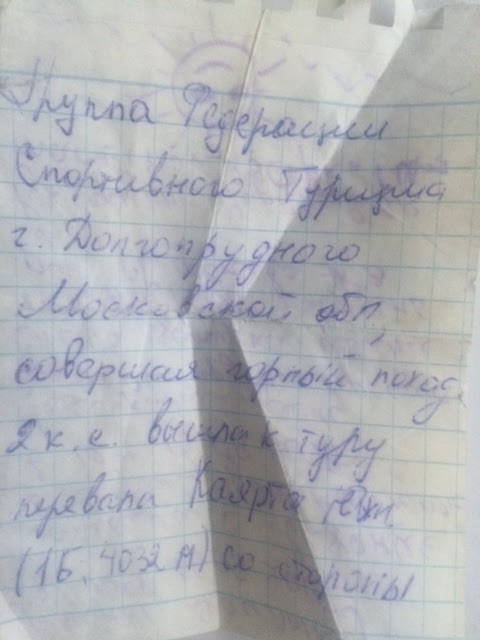 Группа Федерации
Спортивного Туризма
г. Долгопрудного
Московской обл,
совершая горный поход
2 к.с. вышла к туру
перевала Каярта Юж.
(1Б, 4032 м) со стороны